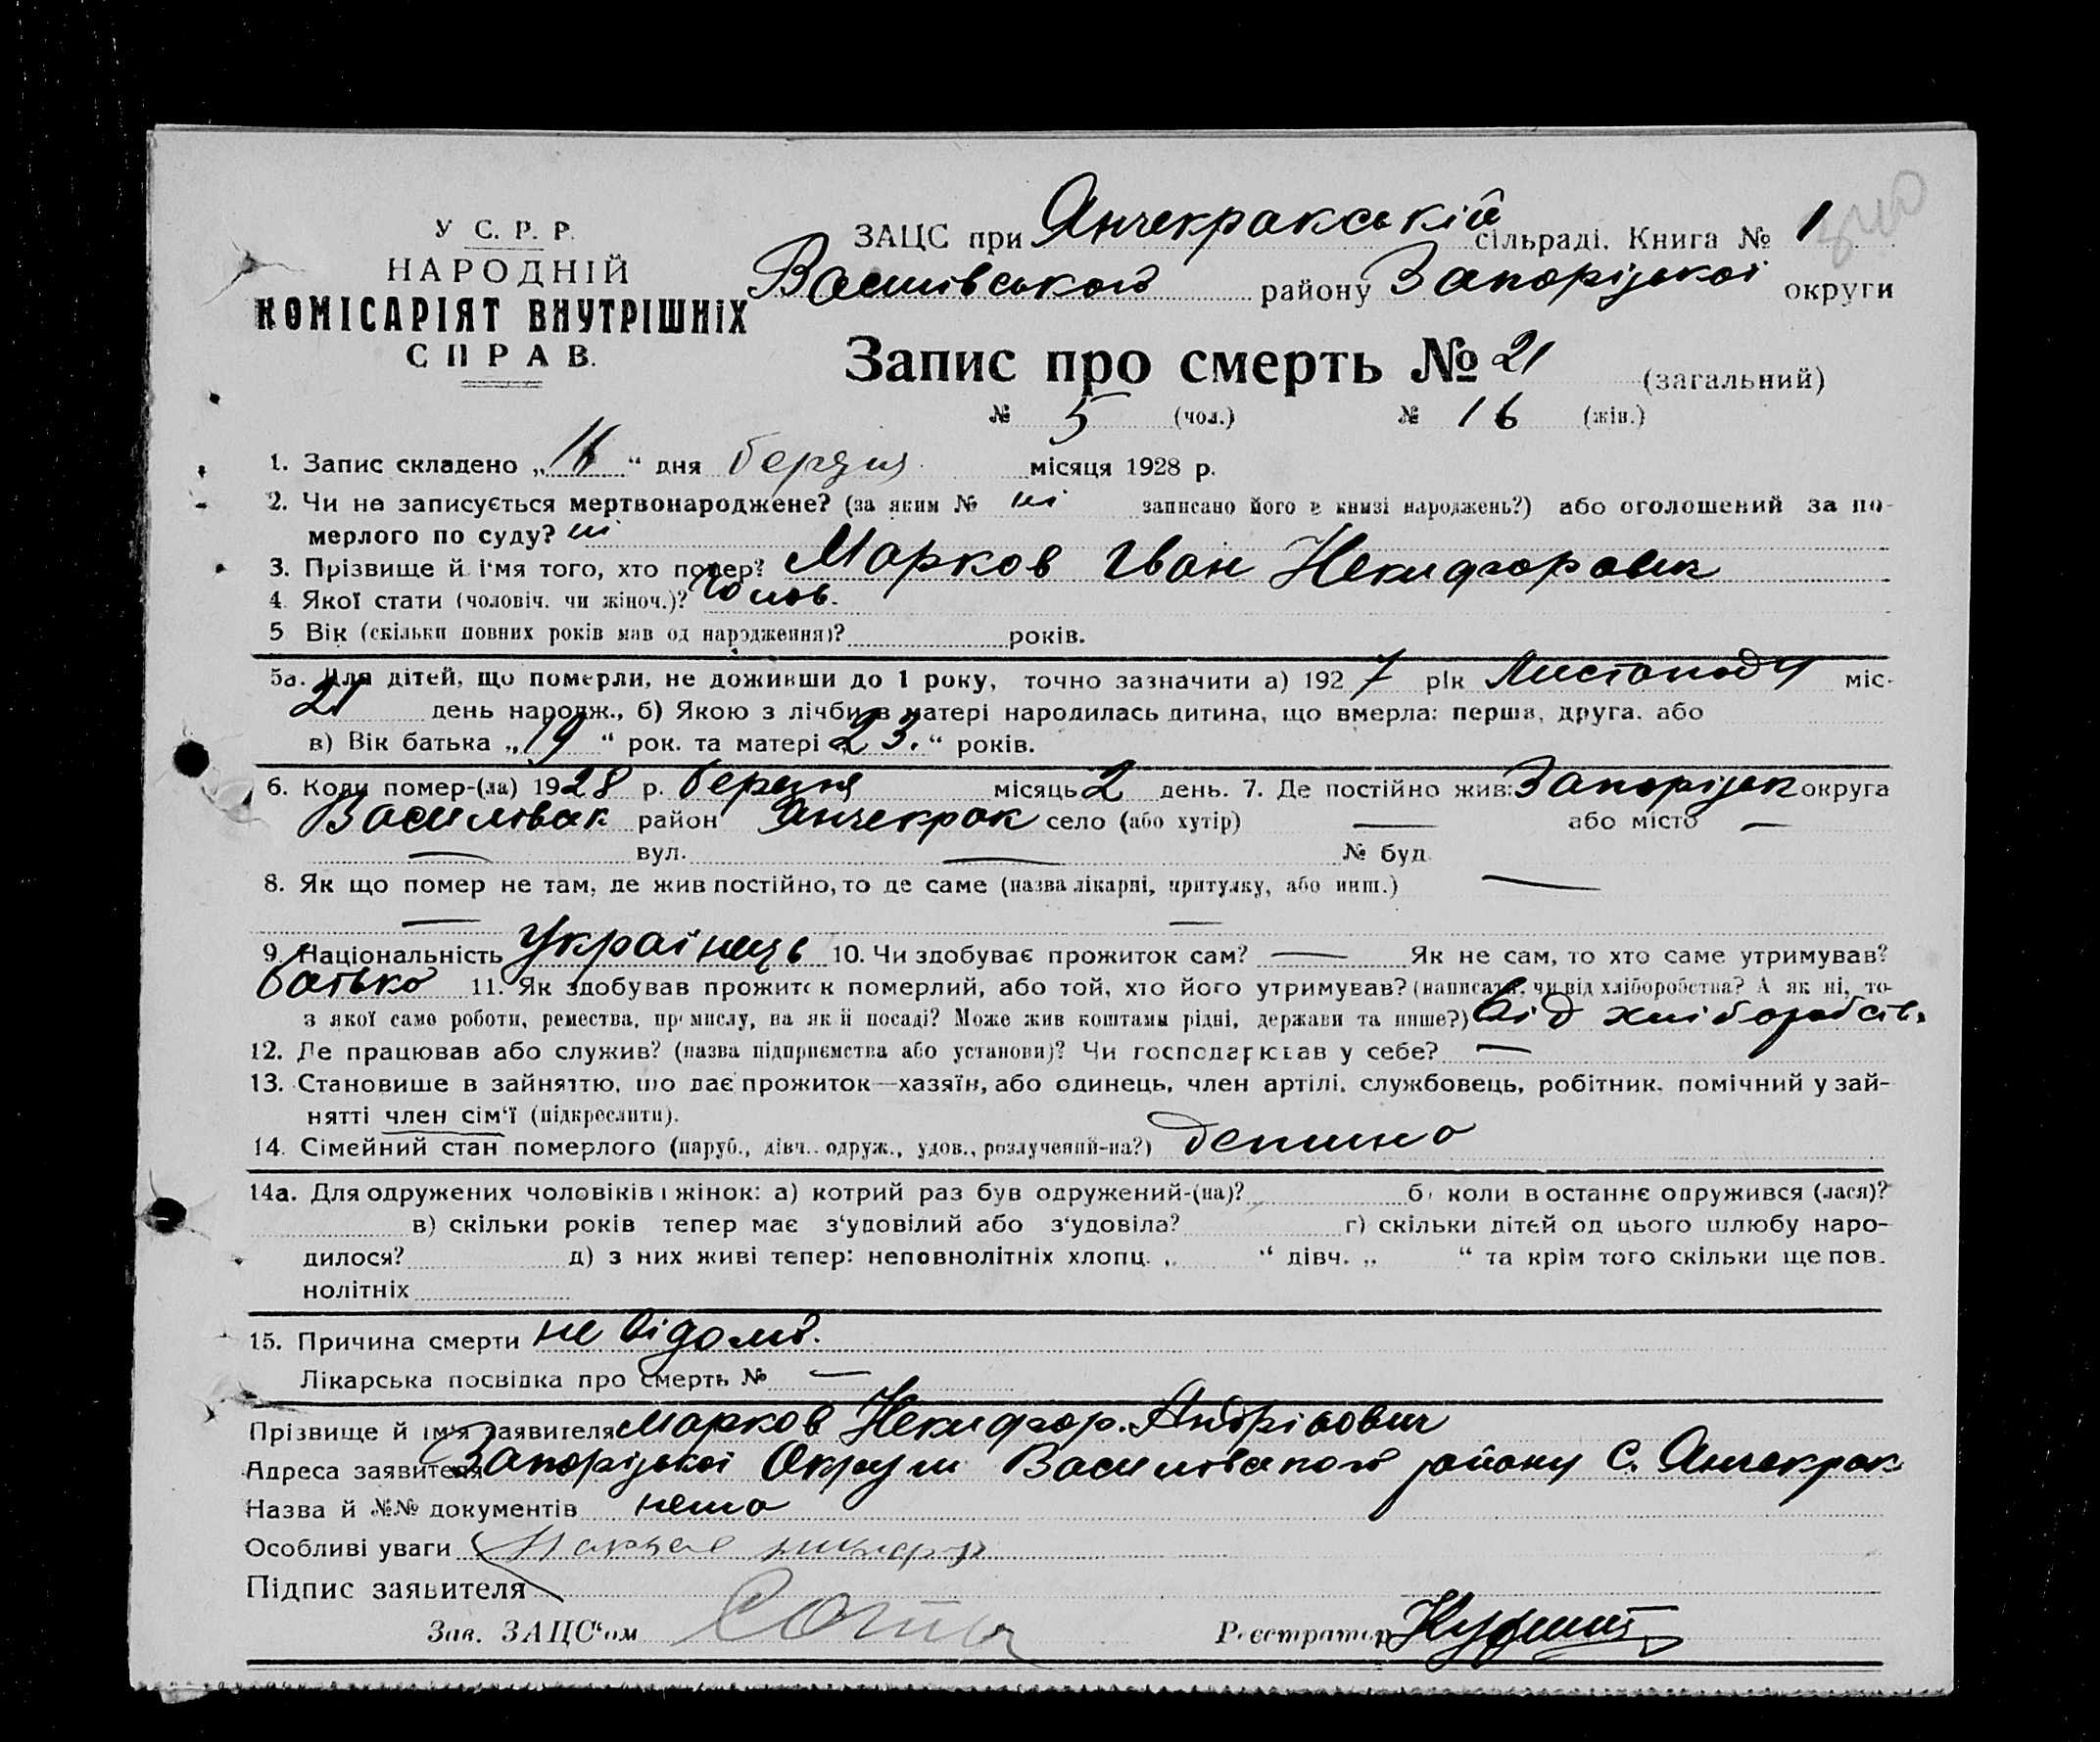 У С. Р. Р.
НАРОДНІЙ
КОМІСАРІЯТ ВНУТРІШНІХ
СПРАВ.
ЗАЦС при Янчекракській сільраді. Книга № 1
Василівського району Запорізької округи
Запис про смерть № 21 (загальний)
№ 5 (чол.) № 16 (жін.)
1. Запис складено „16“ дня березня місяця 1928 р.
2. Чи не записується мертвонароджене? (за яким № ні записано його в книзі народжень?) або оголошений за по-
мерлого по суду? ні
3. Прізвище й ім'я того, хто помер? Марков Іван Некифорович
4. Якої стати (чоловіч. чи жіноч.)? Чолов.
5 Вік (скільки повних років мав од народження)? років.
5а. Для дітей, що померли, не доживши до 1 року, точно зазначити а) 1927 рік Листопада міс.
21 день народж., б) Якою з лічби в матері народилась дитина, що вмерла: перша, друга. або
в) Вік батька „19“ рок. та матері „23.“ років.
6. Коли помер-(ла) 1928 р. березня місяць 2 день. 7. Де постійно жив: Запорізьк округа
Василівськ район Янчекрак село (або хутір) — або місто —
— вул. — № буд.
8. Як що помер не там, де жив постійно, то де саме (назва лікарні, притулку, або инш.) —
— —
9. Національність Українець 10. Чи здобуває прожиток сам? — Як не сам, то хто саме утримував?
батько 11. Як здобував прожиток померлий, або той, хто його утримував? (написати, чи від хліборобства? А як ні, то
з якої само роботи, ремества, промислу, на якій посаді? Може жив коштами рідні, держави та инше?) від хліборобств.
12. Де працював або служив? (назва підприємства або установи)? Чи господарював у себе? —
13. Становище в зайняттю, що дає прожиток—хазяїн, або одинець, член артілі, службовець, робітник. помічний у зай-
нятті член сім'ї (підкреслити).
14. Сімейний стан померлого (паруб., дівч.. одруж., удов., розлучений-на?) детина
14а. Для одружених чоловіків і жінок: а) котрий раз був одружений-(на)? б) коли в останнє одружився (лася)?
в) скільки років тепер має з'удовілий або з'удовіла? г) скільки дітей од цього шлюбу наро-
дилося? д) з них живі тепер: неповнолітніх хлопц. „ “ дівч. „ “ та крім того скільки ще пов.
нолітніх
15. Причина смерти не відомо.
Лікарська посвідка про смерть № —
Прізвище й ім'я заявителя Марков Некифор. Андрійович
Адреса заявителя Запорізької Округи Василівського району С. Янчекрак
Назва й №№ документів нема
Особливі уваги
Підпис заявителя
Зав. ЗАЦС'ом
Реєстратор